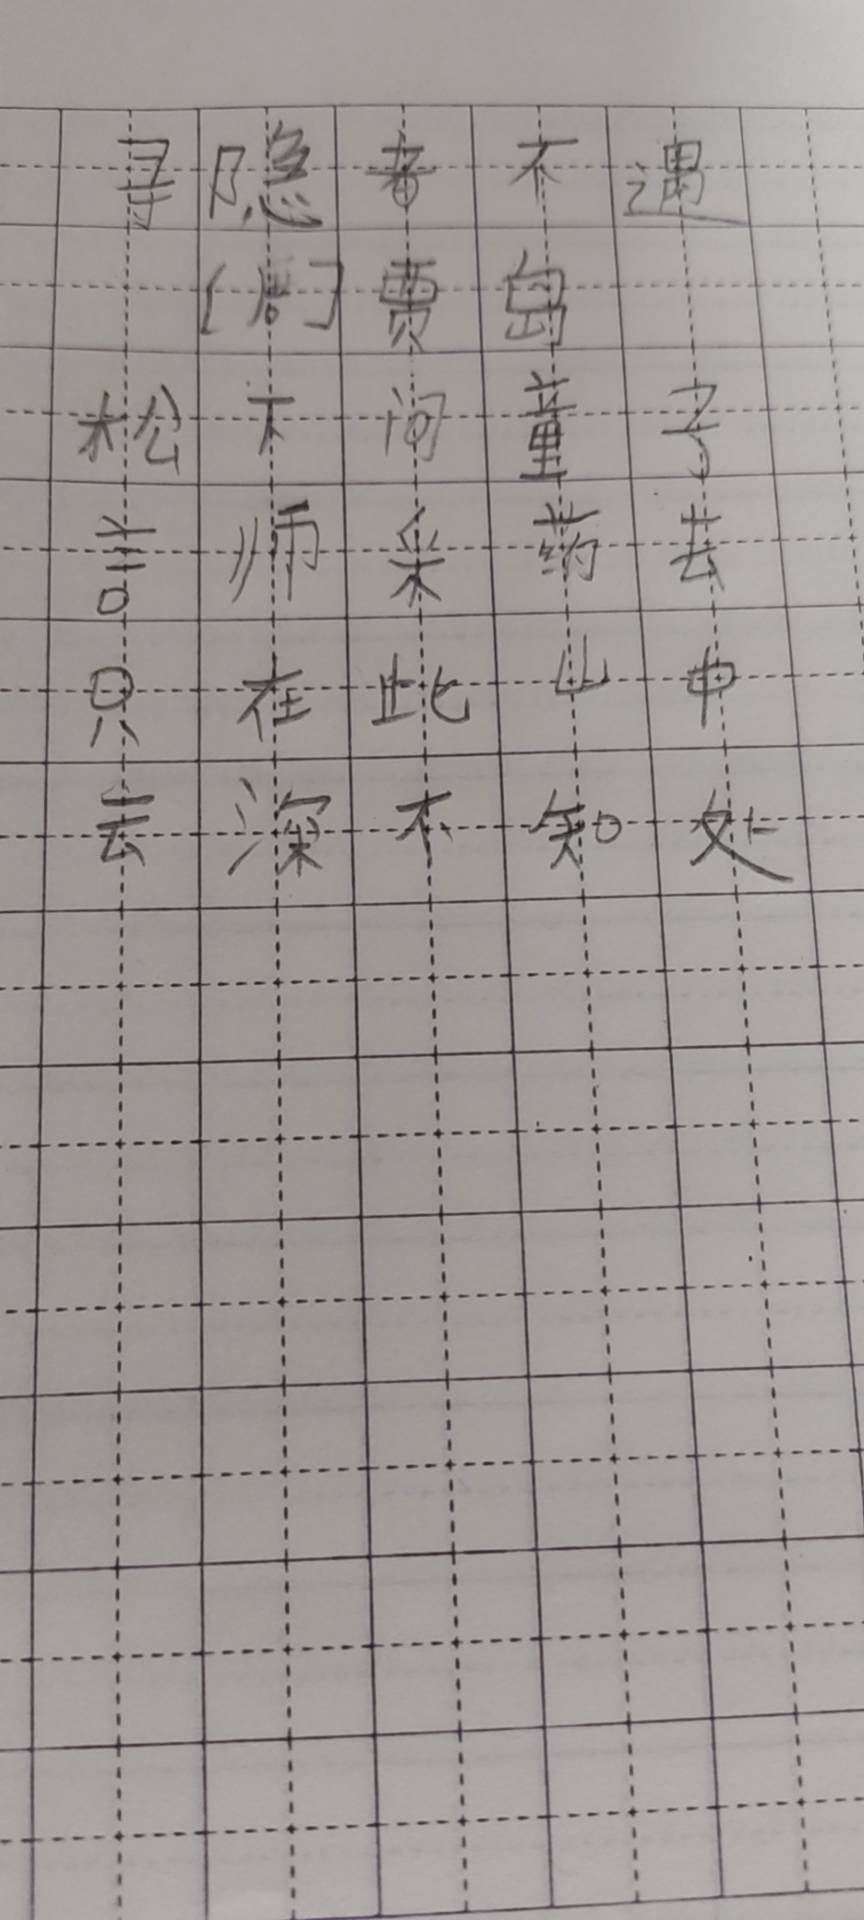 寻隐者不遇
[唐]贾岛
松下问童子
言师采药去
只在此山中
云深不知处